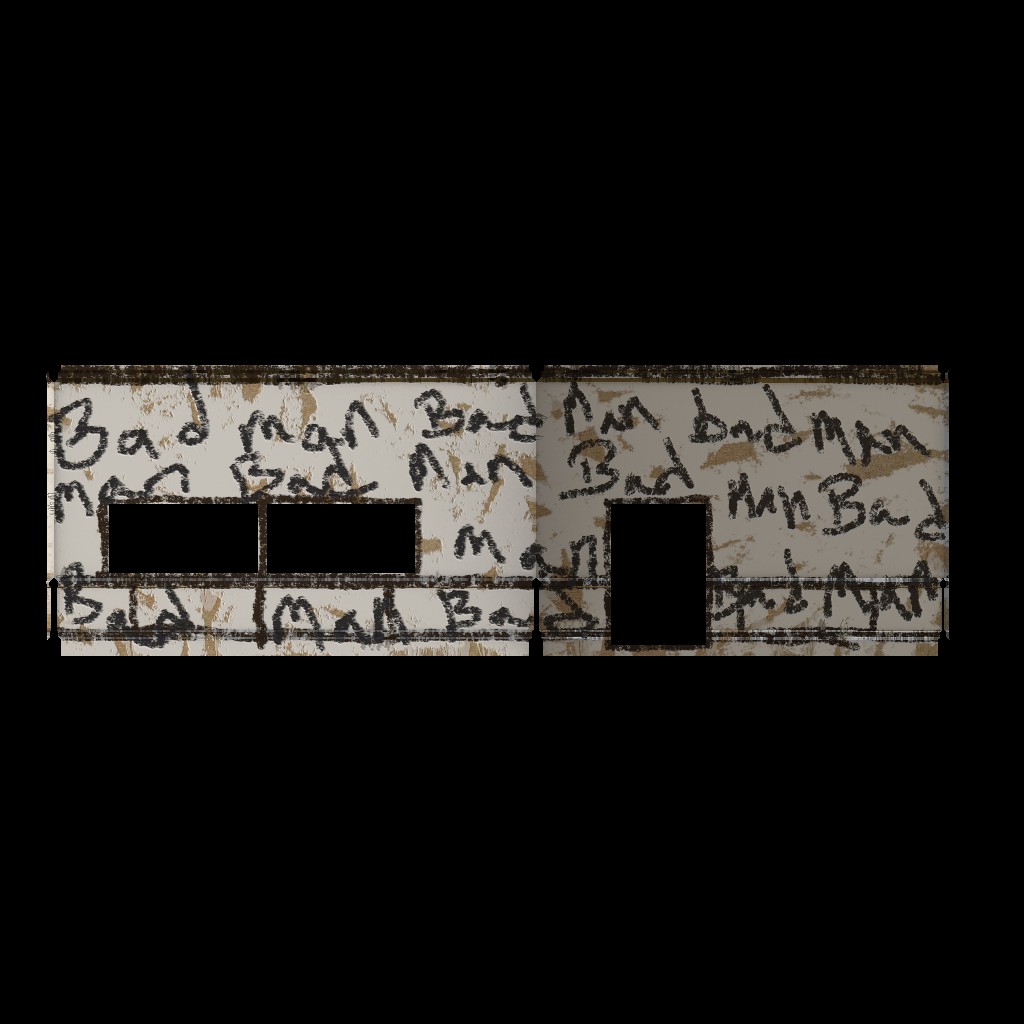 Bad man Bad Man bad Man
man Bad Man Bad Man Bad
man
Bad Man Bad Bad Man